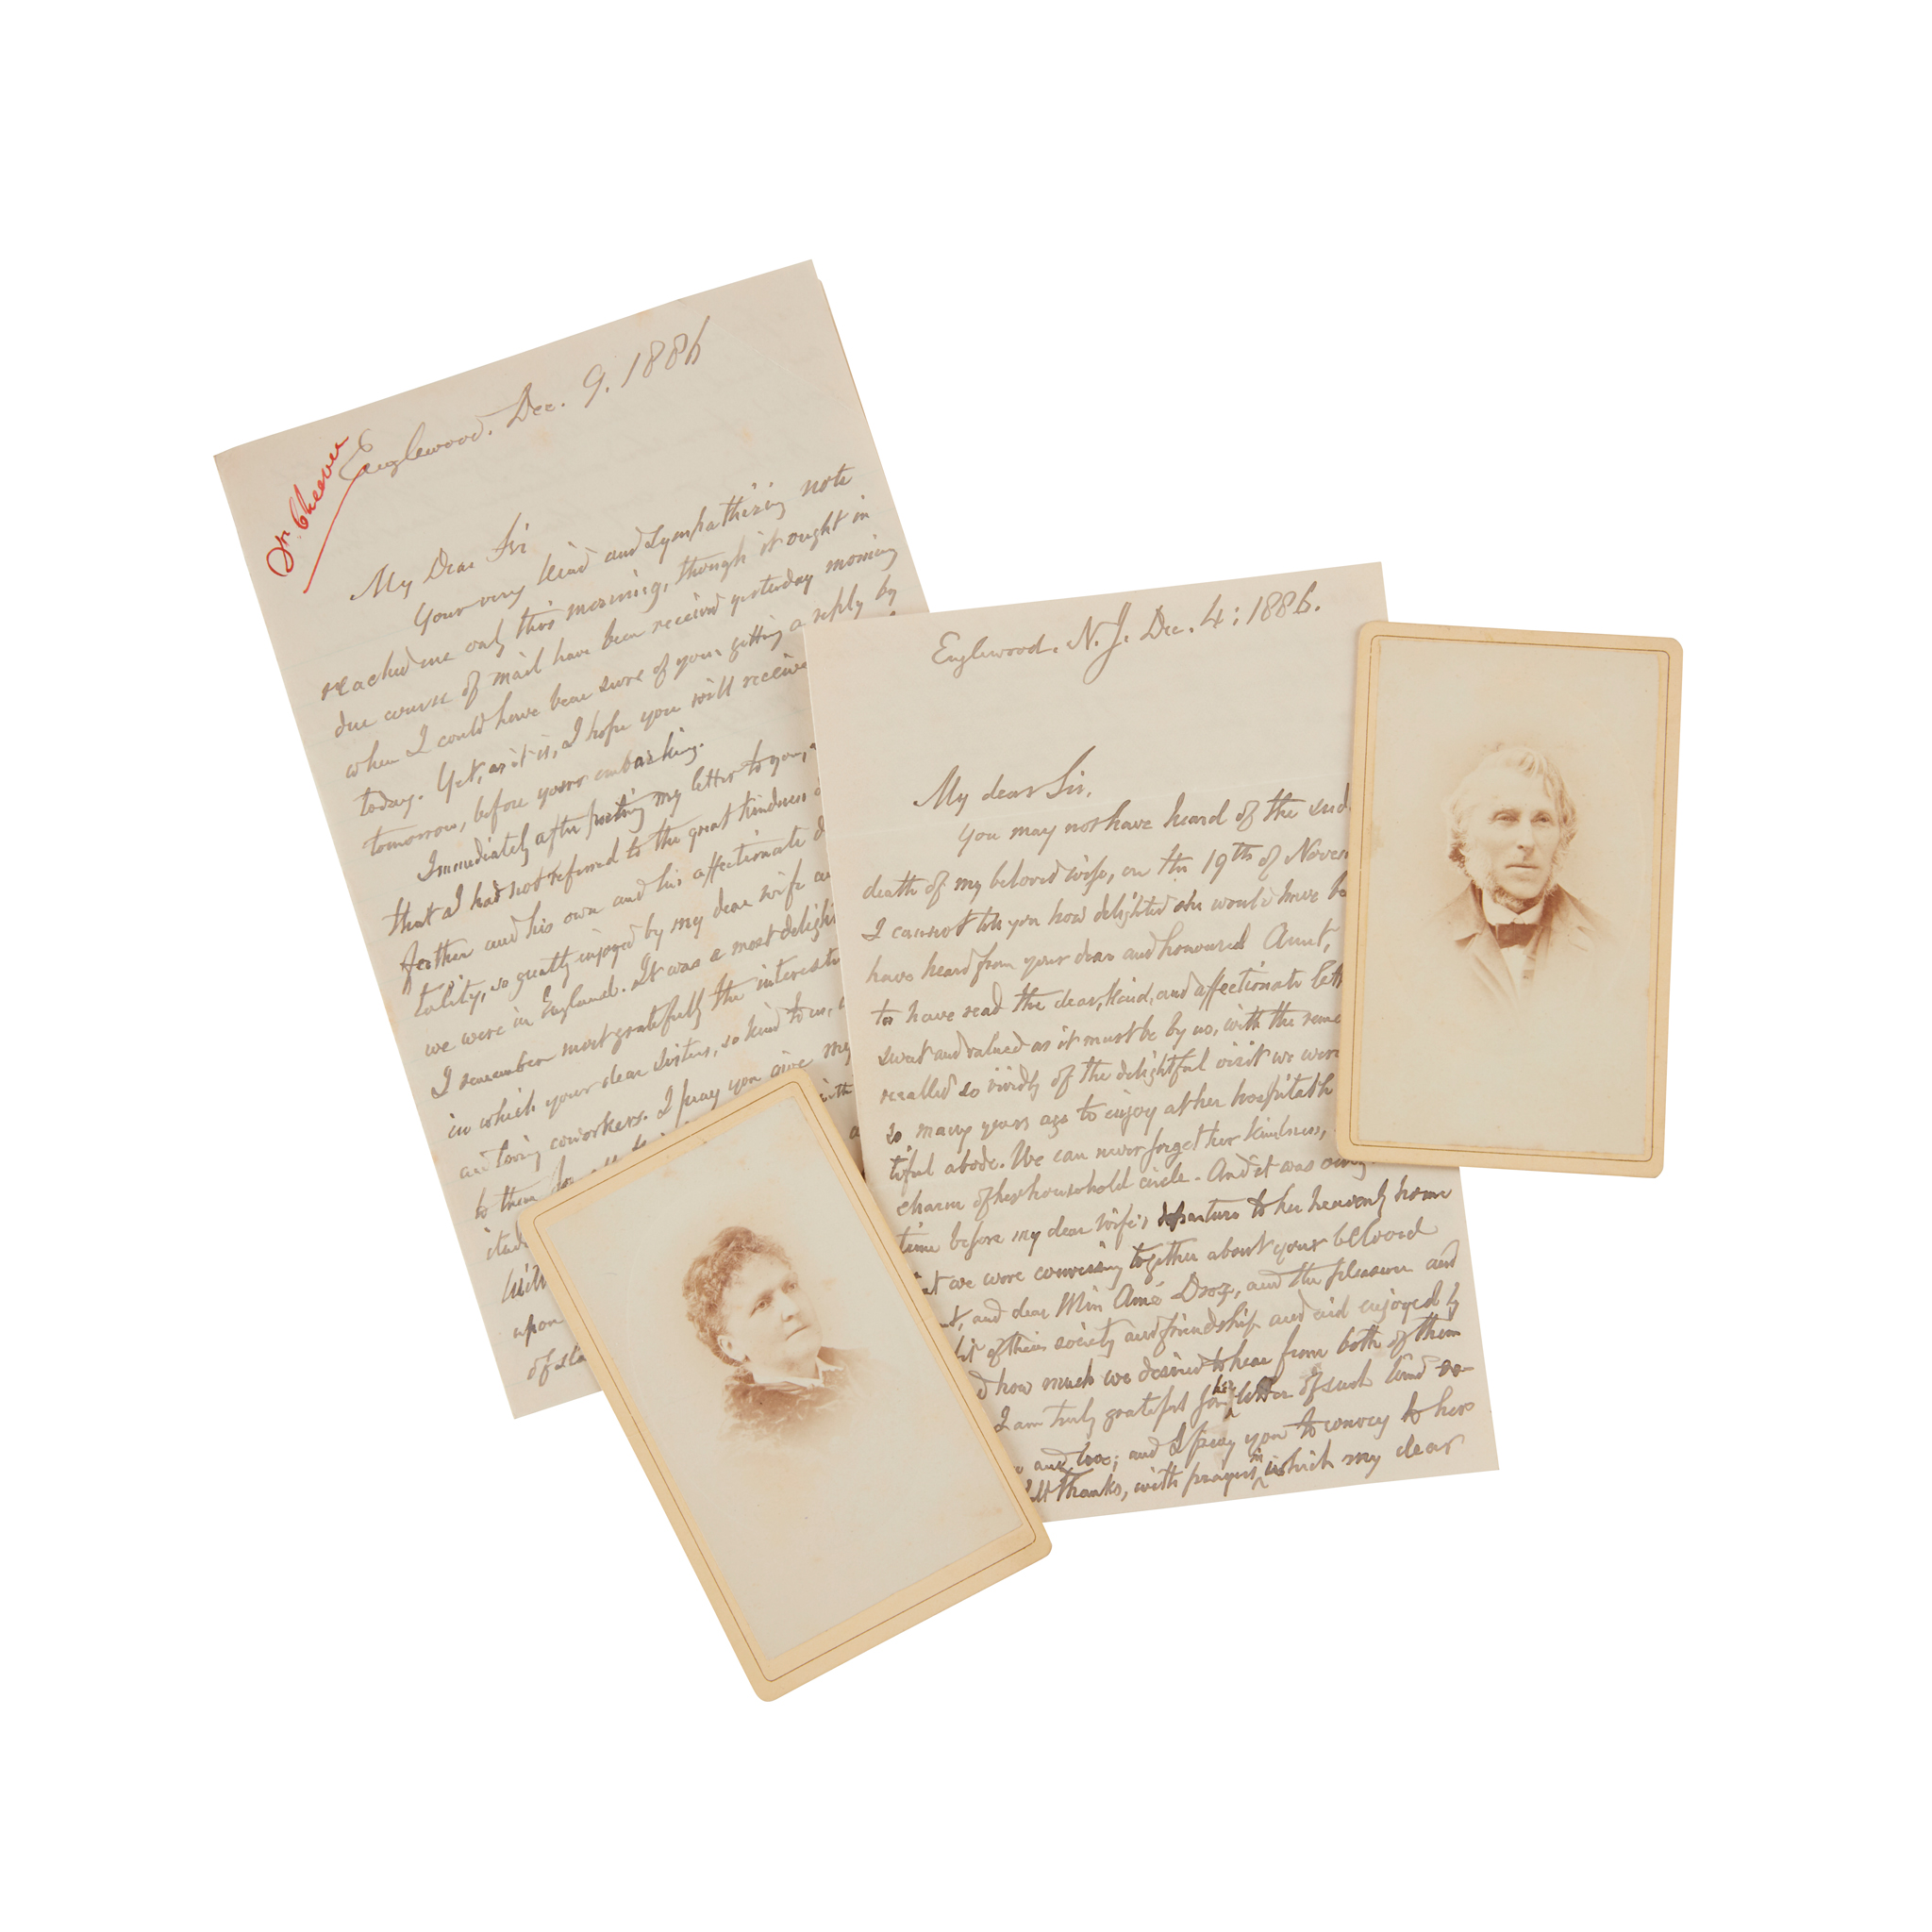 Dr. Cheever
Englewood. Dec. 9. 1886
My Dear Sir
Your very kind and sympathising note
reached me only this morning, though it ought in
due course of mail have been received yesterday morning
when I could have been sure of your getting a reply by
today. Yet, as it is, I hope you will receive
tomorrow, before your embarking.
Immediately after posting my letter to you,
that I had not referred to the great kindness
father and his own and his affectionate
tality, so greatly enjoyed by my dear wife
we were in England. It was a most delight
I remember most gratefully the interest
in which your dear sisters, so kind to us,
as loving coworkers. I pray you give my
to them for all
with
upon
of
Englewood. N. J. Dec. 4: 1886.
My dear Sir,
You may not have heard of the sud
death of my beloved wife, on the 19th of Novem
I cannot tell you how delighted she would have b
have heard from your dear and honoured Aunt,
to have read the dear, kind, and affectionate lett
sweet and valued as it must be by us, with the reme
recalled so vividly of the delightful visit we were
so many years ago to enjoy at her hospitable
tiful abode. We can never forget her kindness,
charm of her household circle. And it was only
time before my dear wife's departure to her heavenly home
we were conversing together about your beloved
and dear Miss Amé Droz, and the pleasure and
of their society and friendship and aid enjoyed by
how much we desired to hear from both of them
I am truly grateful for her letter of such kind re-
and love; and I pray you to convey to her
thanks, with prayers in which my dear